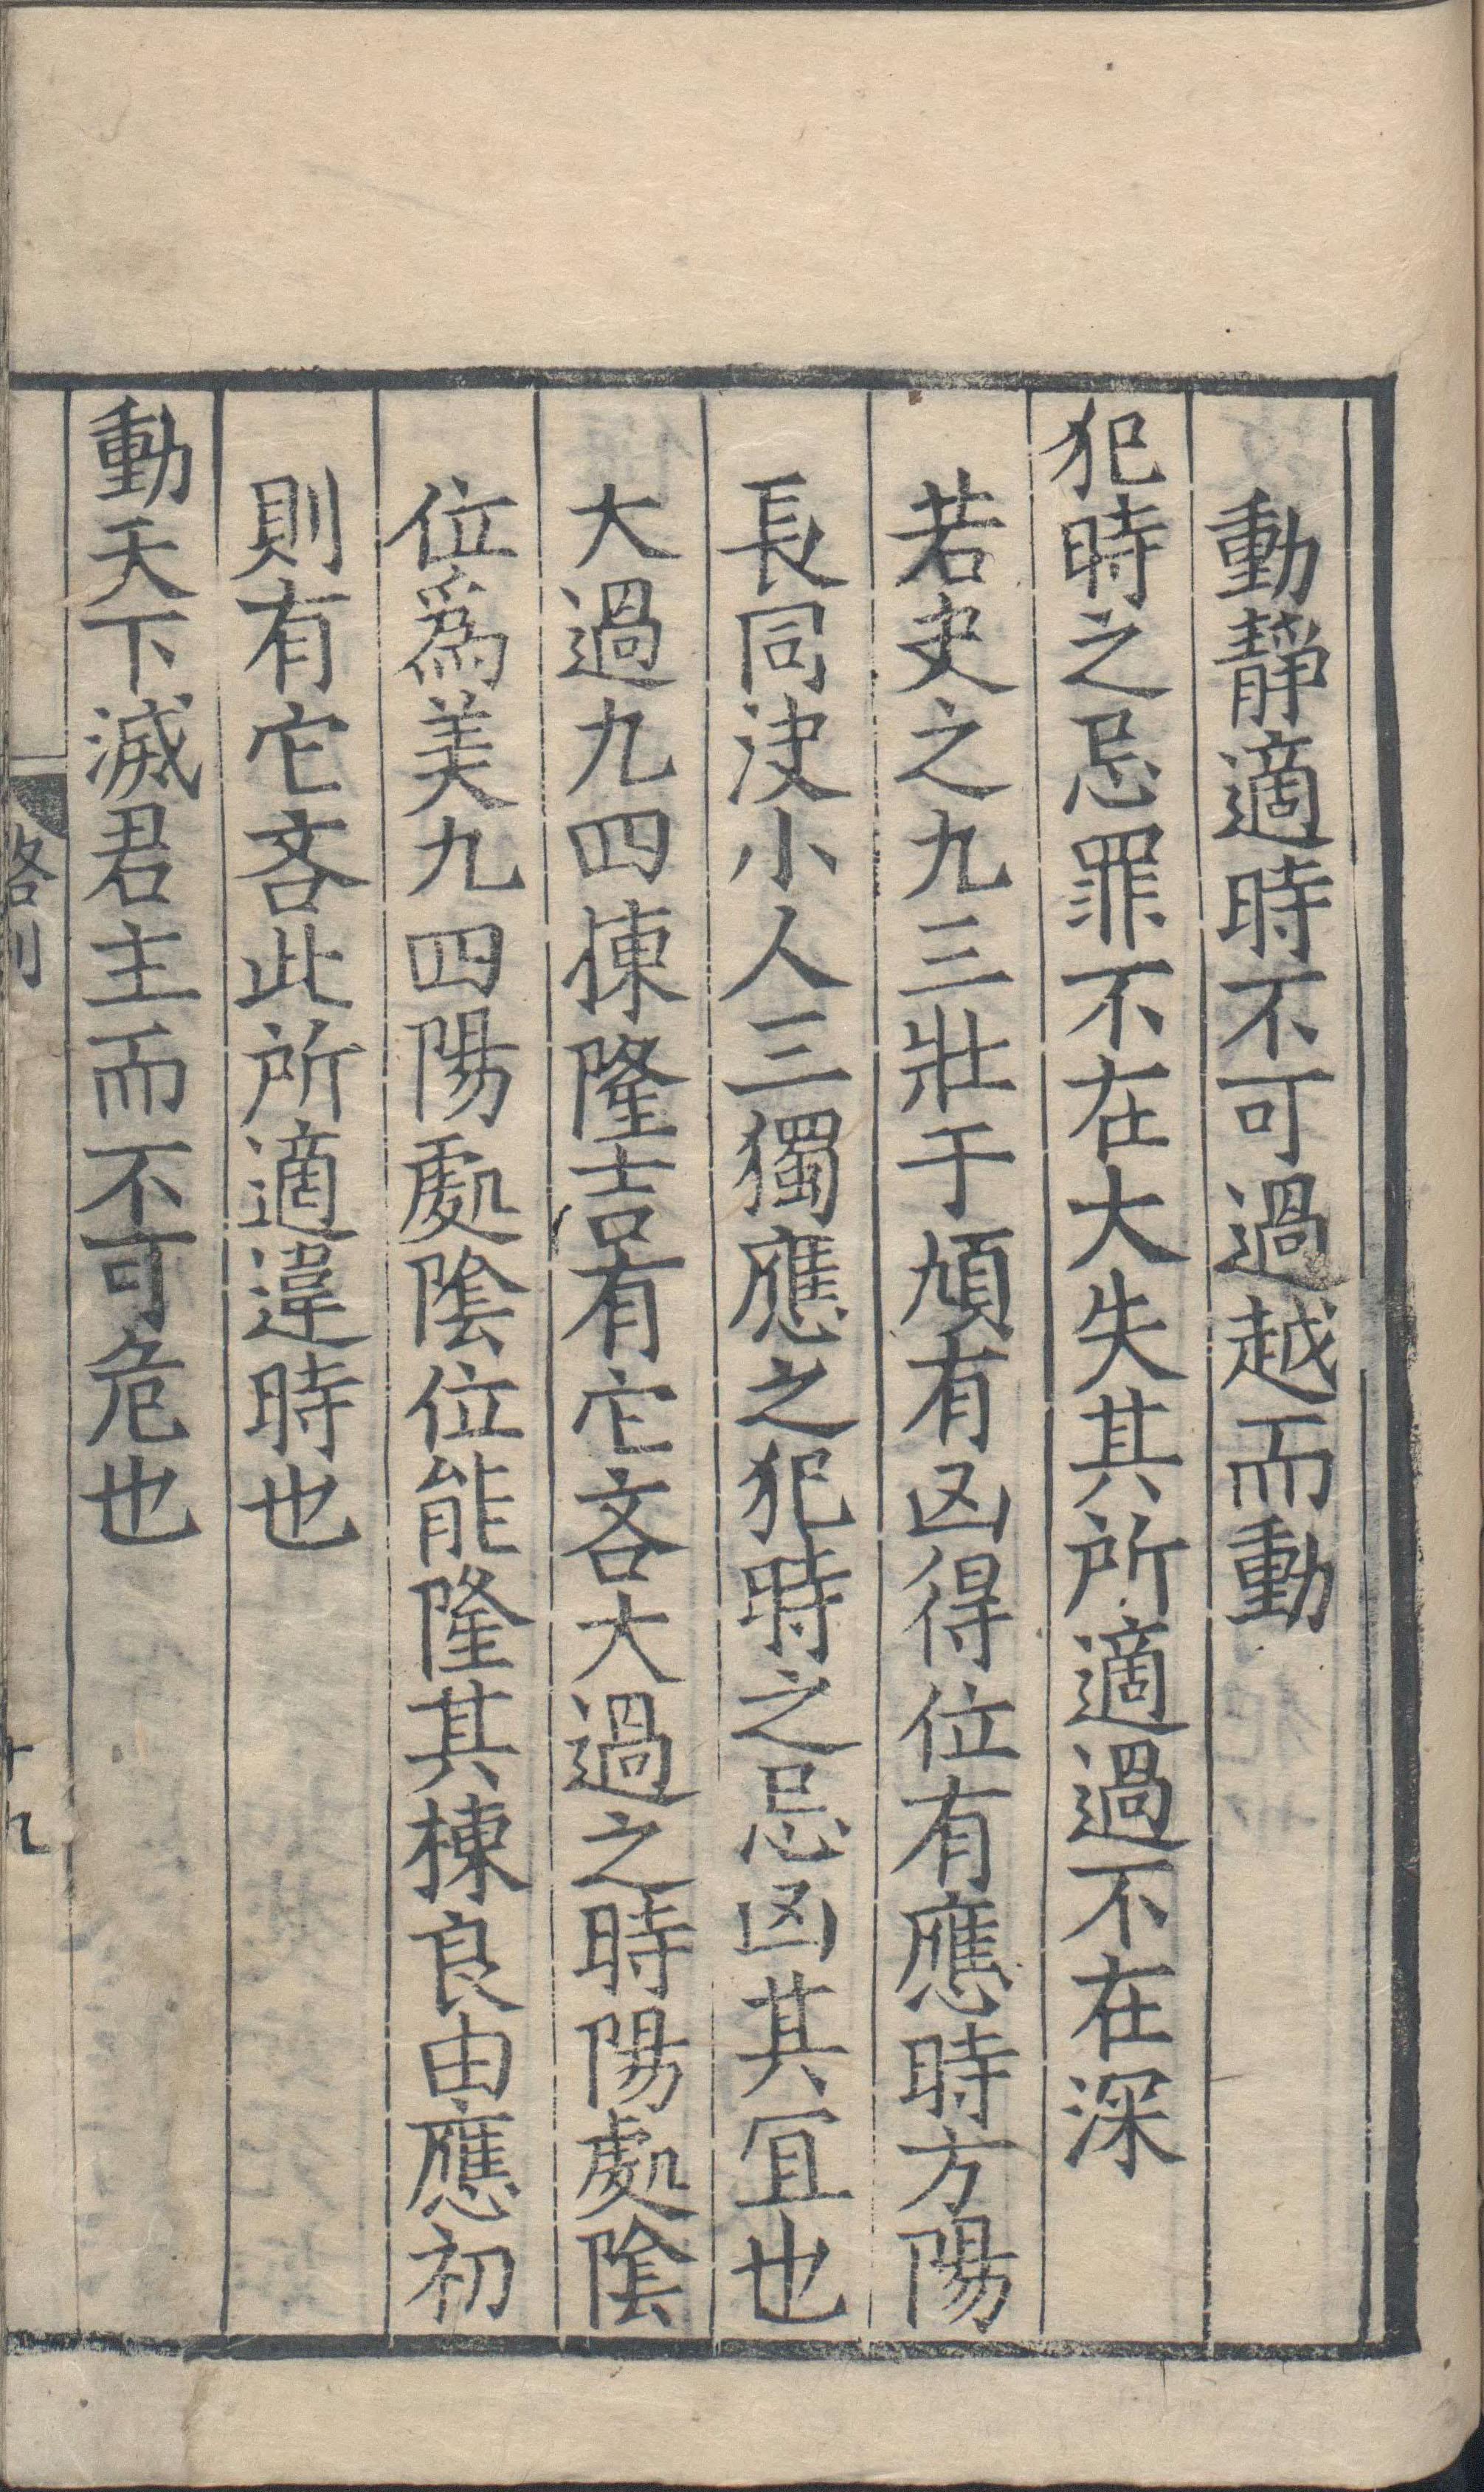 動靜適時不可過越而動
犯時之忌罪不在大失其所適過不在深
若夬之九三壯于頄有凶得位有應時方陽
長同決小人三獨應之犯時之忌凶其宜也
大過九四棟隆吉有它吝大過之時陽處陰
位爲美九四陽處陰位能隆其棟良由應初
則有它吝此所適違時也
動天下滅君主而不可危也
略例
十九